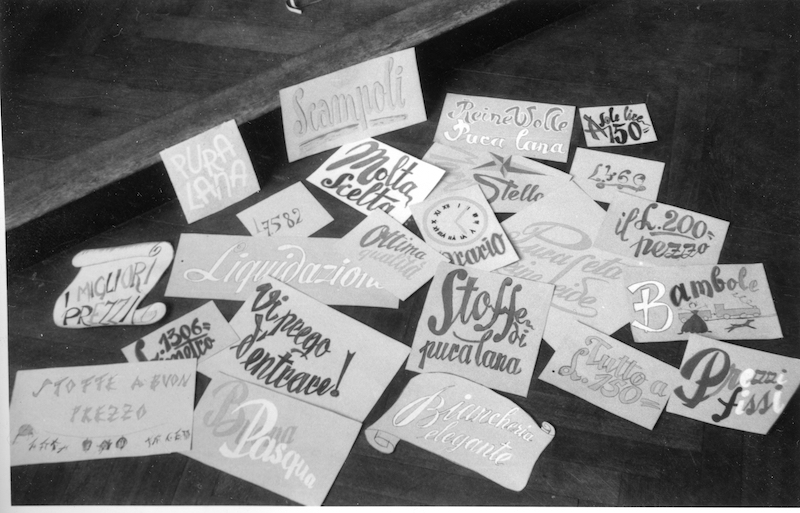 Scampoli
Reine Wolle
Pura lana
A sole lire
150=
PURA
LANA
Molta
scelta
Stella
L.460
L7582
Ottima
qualità
orario
Pura seta
il L.200=
pezzo
Liquidazioni
I MIGLIORI
PREZZI
Vi prego
d'entrare!
Stoffe
di
pura lana
Bambole
L.1306=
il metro
Tutto a
L.750=
Prezzi
fissi
STOFFE A BUON
PREZZO
Buona
Pasqua
Biancheria
elegante